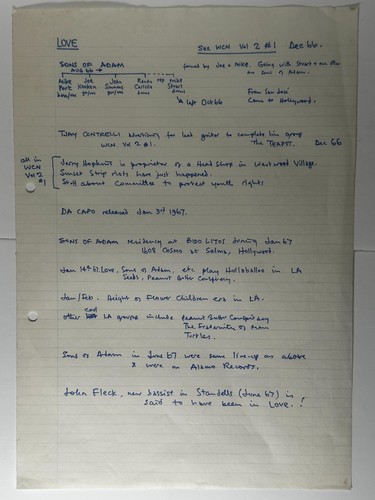 LOVE
See WCN Vol 2 #1 Dec 66.
SONS OF ADAM formed by Joe & Mike. Going with Stuart & on
AUG 66 → as Sons of Adam.
Mike Port bass/vo
Joe Kooken gui/vo
Jac Simmons gui/vo
Randy Carlisle drums
rep Mike Stuart drums
↳ left Oct 66
From San Jose
Came to Hollywood.
TJAY CONTRELLI searching for lead guitar to complete his group
WCN Vol 2 #1. The TEAPOT. Dec 66
all in WCN Vol 2 #1
Jerry Hopkins is proprietor of a Head Shop in Westwood Village.
Sunset Strip riots have just happened.
Stuff about Committee to protect youth rights
DA CAPO released Jan 3rd 1967.
SONS OF ADAM residency at BIDO LITOS during Jan 67
1608 Cosmo at Selma, Hollywood.
Jan 14th 67. Love, Sons of Adam, etc play Hullabaloo in LA
Seeds, Peanut Butter Conspiracy.
Jan/Feb. Height of Flower Children era in LA.
Other cool LA groups include Peanut Butter Conspiracy
The Fraternity of Man
Turtles.
Sons of Adam in June 67 were same line-up as above
& were on Alamo Records.
John Fleck, new bassist in Standells (June 67) is
said to have been in Love!